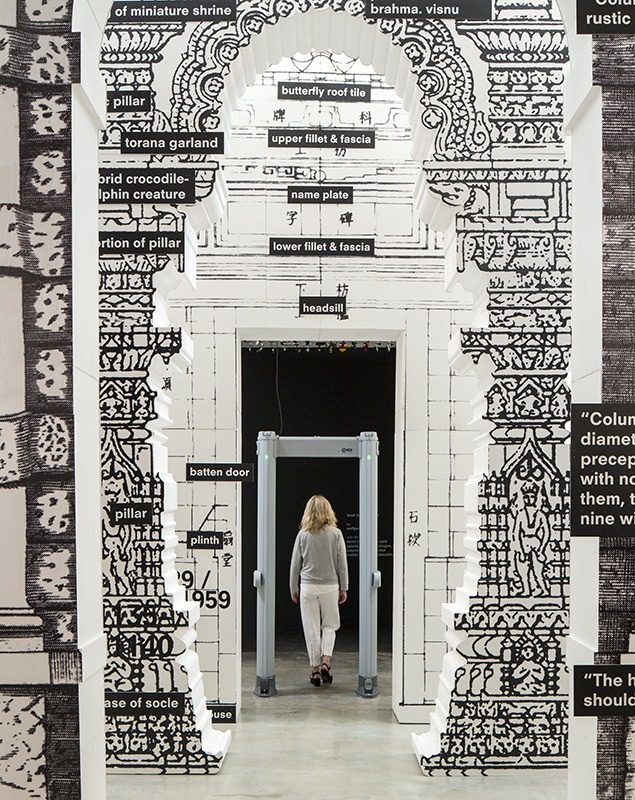 of miniature shrine
brahma. visnu
"Colu
rustic
pillar
butterfly roof tile
牌 科
torana garland
upper fillet & fascia
brid crocodile-
lphin creature
name plate
字 碑
ortion of pillar
lower fillet & fascia
headsill
"Colun
diamet
precep
with no
them, t
nine wi
batten door
pillar
石
plinth
9/
1959
735–
1140
"The h
should
ase of socle
use